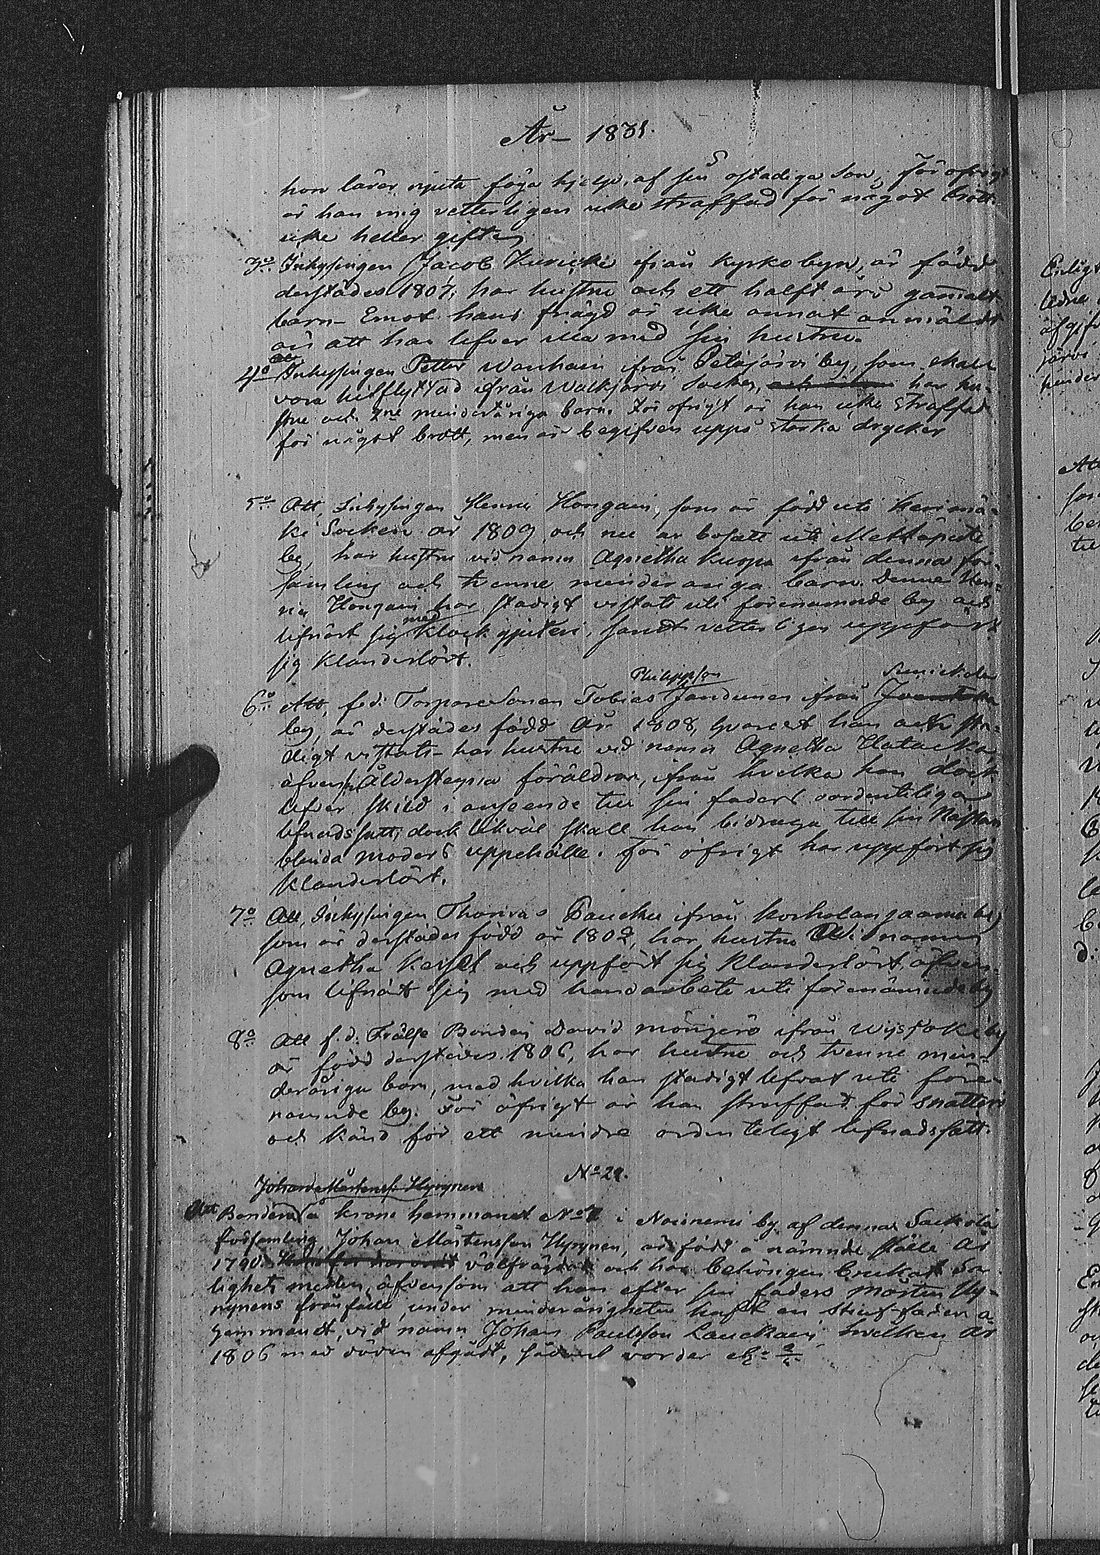 År 1831.
hon lärer njuta föga hjelp af sin ostadiga son, för öfrigt
är han mig vetterligen icke straffad för något brott
icke heller gift.
3o Inhysingen Jacob Kuricki ifrån Kyrkobyn, är född
derstädes 1807, har hustru och ett halft års gammalt
barn. Emot hans frägd är icke annat anmäldt
än att han lefver illa med sin hustru.
4o Att Inhysingen Petter Wanhain från Petäjärvi by, som skall
vara hitflyttad ifrån Walkjärvi Socken, har hu-
stru och 2ne minderåriga barn. För öfrigt är han icke straffad
för något brott, men är begifven uppå starka drycker
5o Att Inhysingen Henric Hongain, som är född uti Kerimä-
ki Socken år 1809 och nu är bosatt uti
by, har hustru vid namn Agnetha Kuopa ifrån denna för-
samling och tvenne minderåriga barn. Denne Hen-
ric Hongain har stadigt vistats uti förenämnde by och
lifnärt sig med Klock gjuteri, samt vetterligen uppfört
sig klanderlöst.
Philippson
6o Att, f.d. Torparesonen Tobias Jandunen ifrån
by, är derstädes född år 1808, hvarest han ock sta-
digt vistats har hustru vid namn Agnetha Hatacka
äfven Ålderstegna föräldrar, ifrån hvilka han dock
lefver skild i anseende till sin faders oordentliga
lefnadssätt, dock likväl skall han bidraga till sin
blinda moders uppehälle. För öfrigt har uppfört sig
klanderlöst.
7o Att, Inhysingen Thomas Paucku ifrån by
som är derstädes född år 1802, har hustru vid namn
Agnetha och uppfört sig klanderlöst äfven-
som lifnärt sig med handarbete uti förenämnde by
8o Att f.d. Frälse Bonden David ifrån by
är född derstädes 1806, har hustru och tvenne min-
deråriga barn, med hvilka han stadigt lefvat uti före-
nämnde by. För öfrigt är han straffad för snatteri
och känd för ett mindre ordenteligt lefnadssätt.
No 29.
Johan Mårtensson Hyrynen
Att Bonden å krono hemmanet No i Noisnemi by af denna Sackola
församling Johan Mårtensson Hyrynen, är född å nämnde ställe år
1790. välfrägdad och har behörigen brukat Sa-
lighets medlen, äfvensom att han efter sin faders Mårten Hy-
rynens frånfälle under minderårigheten haft en stiuf-fader å
hemmanet, vid namn Johan Paulsson Lauckain hvilken år
1806 med döden afgådt, hvarder